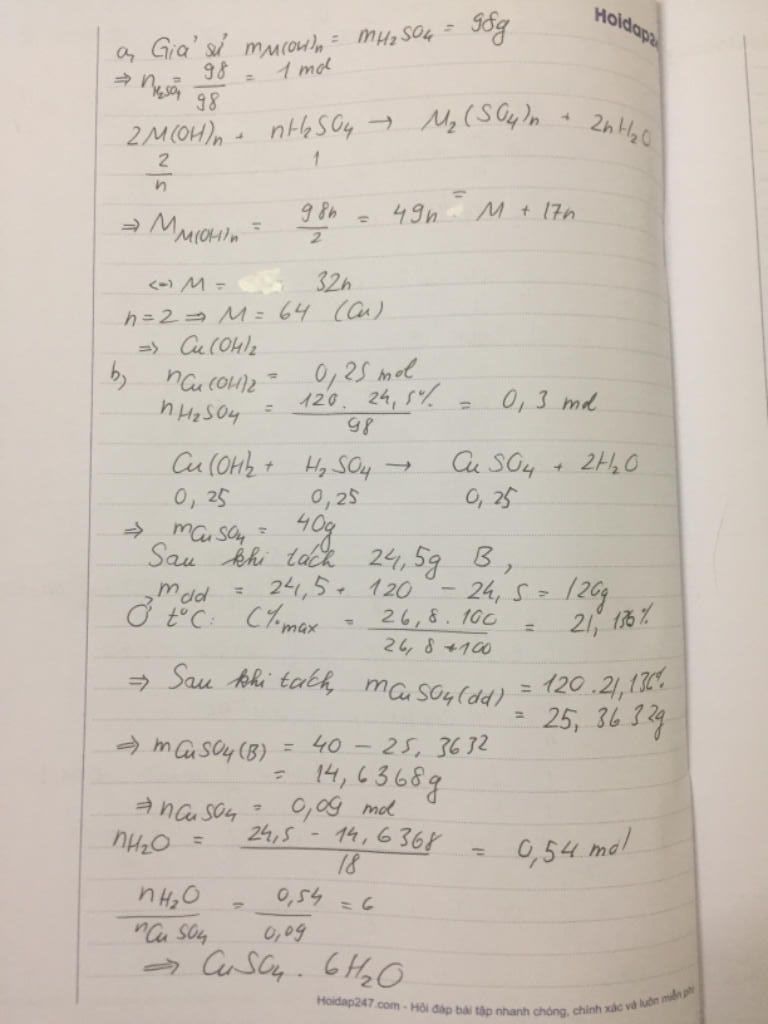 Hoidap24
a, Giả sử mM(OH)n = mH2SO4 = 98g
⇒ nH2SO4 = 98/98 = 1 mol
2M(OH)n + nH2SO4 → M2(SO4)n + 2nH2O
2/n 1
⇒ MM(OH)n = 98n/2 = 49n = M + 17n
<=> M = 32n
n=2 ⇒ M = 64 (Cu)
⇒ Cu(OH)2
b, nCu(OH)2 = 0,25 mol
nH2SO4 = 120. 24,5%/98 = 0,3 mol
Cu(OH)2 + H2SO4 → CuSO4 + 2H2O
0,25 0,25 0,25
⇒ mCuSO4 = 40g
Sau khi tách 24,5g B,
mdd = 24,5 + 120 - 24,5 = 120g
Ở t°C: C%max = 26,8.100/26,8+100 = 21,136%
⇒ Sau khi tách, mCuSO4(dd) = 120.21,136%
= 25,3632g
⇒ mCuSO4(B) = 40 - 25,3632
= 14,6368g
⇒ nCuSO4 = 0,09 mol
nH2O = 24,5 - 14,6368/18 = 0,54 mol
nH2O/nCuSO4 = 0,54/0,09 = 6
⇒ CuSO4.6H2O
Hoidap247.com - Hỏi đáp bài tập nhanh chóng, chính xác và luôn miễn phí